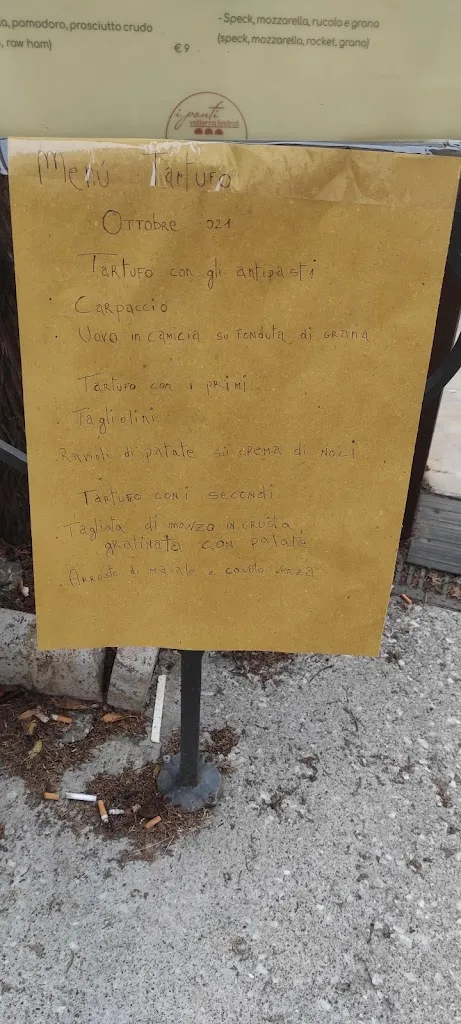 a, pomodoro, prosciutto crudo
, raw ham)
€ 9
- Speck, mozzarella, rucola e grana
(speck, mozzarella, rocket, grana)
i panti
Menú Tartufo
Ottobre 021
Tartufo con gli antipasti
. Carpaccio
. Uovo in camicia su fonduta di grana
Tartufo con i primi
. Tagliolini
. Ravioli di patate su crema di noci
Tartufo con i secondi
. Tagliata di manzo in crosta
gratinata con patate
. Arrosto di maiale e cavolo